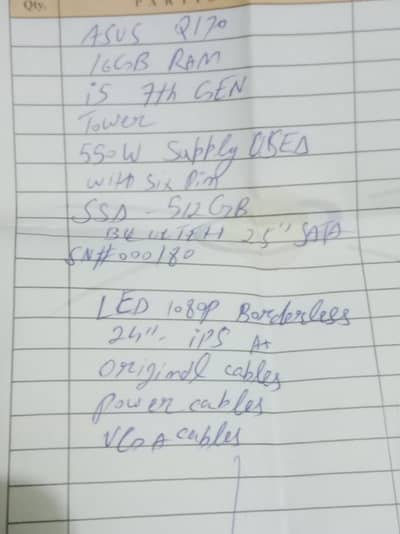 Qty.
ASUS Q170
16GB RAM
i5 7th GEN
Tower
550W Supply USED
with Six Pin
SSD - 512 GB
2.5" SATA
SN# 000180
LED 1080P Borderless
24" - iPS A+
Original cables
Power cables
VGA cables